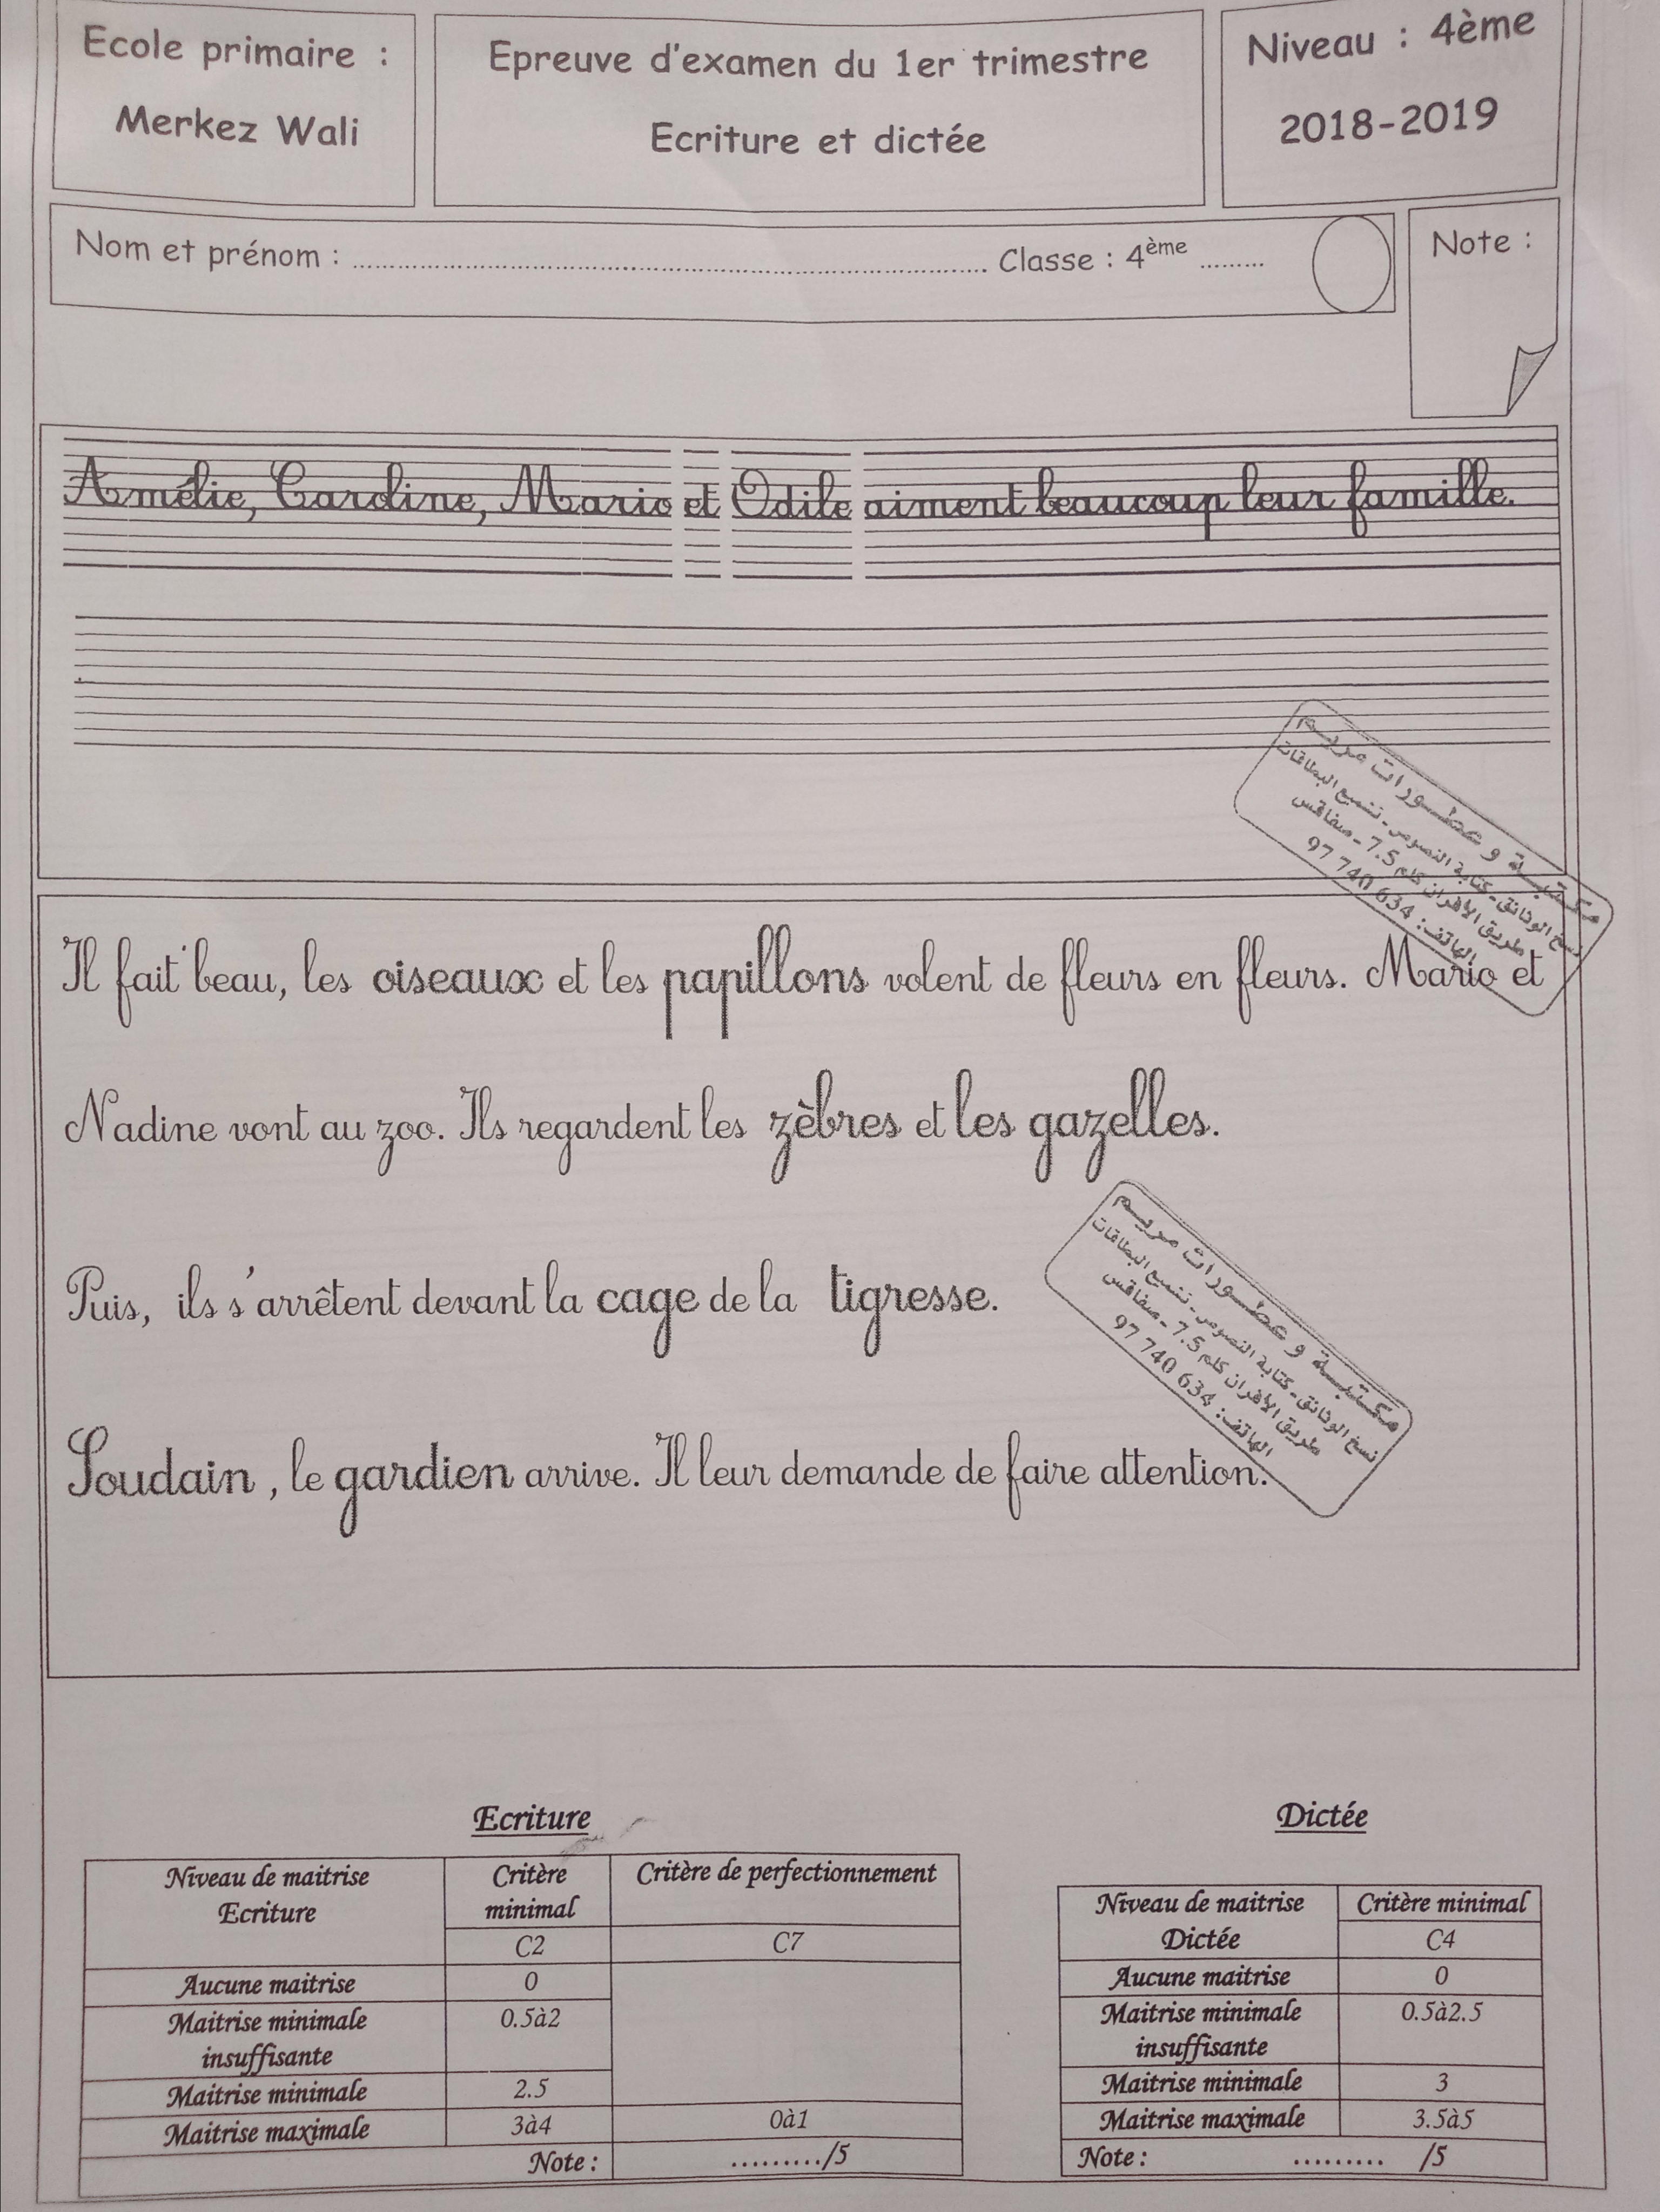 Ecole primaire :
Merkez Wali
Epreuve d'examen du 1er trimestre
Ecriture et dictée
Niveau : 4ème
2018-2019
Nom et prénom : ........................ Classe : 4ème .........
Note :
Amélie, Caroline, Mario et Odile aiment beaucoup leur famille.
Il fait beau, les oiseaux et les papillons volent de fleurs en fleurs. Mario et
Nadine vont au zoo. Ils regardent les zèbres et les gazelles.
Puis, ils s'arrêtent devant la cage de la tigresse.
Soudain, le gardien arrive. Il leur demande de faire attention.
مكتبة و عطورات مريم
نسخ الوثائق - كتابة النصوص - تشميع البطاقات
طريق الأفران كلم 7.5 - صفاقس
الهاتف: 97 740 634
مكتبة و عطورات مريم
نسخ الوثائق - كتابة النصوص - تشميع البطاقات
طريق الأفران كلم 7.5 - صفاقس
الهاتف: 97 740 634
Ecriture
Niveau de maitrise
Ecriture
Critère
minimal
Critère de perfectionnement
C2
C7
Aucune maitrise 0
Maitrise minimale 0.5à2
insuffisante
Maitrise minimale 2.5
Maitrise maximale 3à4 0à1
Note : ........./5
Dictée
Niveau de maitrise Critère minimal
Dictée C4
Aucune maitrise 0
Maitrise minimale 0.5à2.5
insuffisante
Maitrise minimale 3
Maitrise maximale 3.5à5
Note : ......... /5